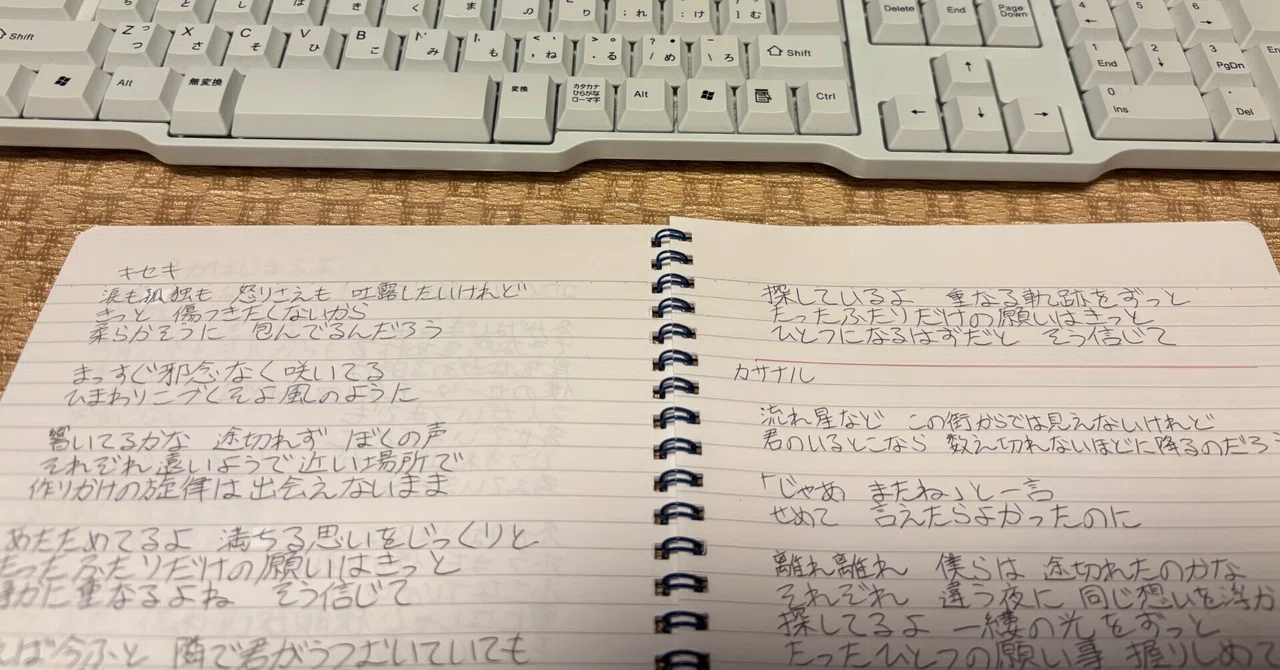 Shift
Z っ つ
X さ
C そ
V ひ
B こ
み
M も
< 、 , ね
> 。 . る
? ・ / め
_ \ ろ
Shift
Delete
End
Page Down
4 ←
5
6 →
Alt
無変換
変換
カタカナ ひらがな ローマ字
Alt
Ctrl
↑
← ↓ →
1 End
2 ↓
3 PgDn
0 Ins
. Del
キセキ
涙も孤独も 怒りさえも 吐露したいけれど
きっと 傷つきたくないから
柔らかそうに 包んでるんだろう
まっすぐ邪念なく咲いてる
ひまわりこづくそよ風のように
響いてるかな 途切れず ぼくの声
それぞれ遠いようで近い場所で
作りかけの旋律は出会えないまま
あたためてるよ 満ちる思いをじっくりと
たったふたりだけの願いはきっと
かに重なるよね そう信じて
ば今ふと 隣で君がうつむいていても
探しているよ 重なる軌跡をずっと
たったふたりだけの願いはきっと
ひとつになるはずだと そう信じて
カサナル
流れ星など この街からでは見えないけれど
君のいるとこなら 数え切れないほどに降るのだろう
「じゃあ またね」と一言
せめて 言えたらよかったのに
離れ離れ 僕らは 途切れたのかな
それぞれ 違う夜に 同じ想いを浮か
探してるよ 一縷の光をずっと
たったひとつの願い事 握りしめて